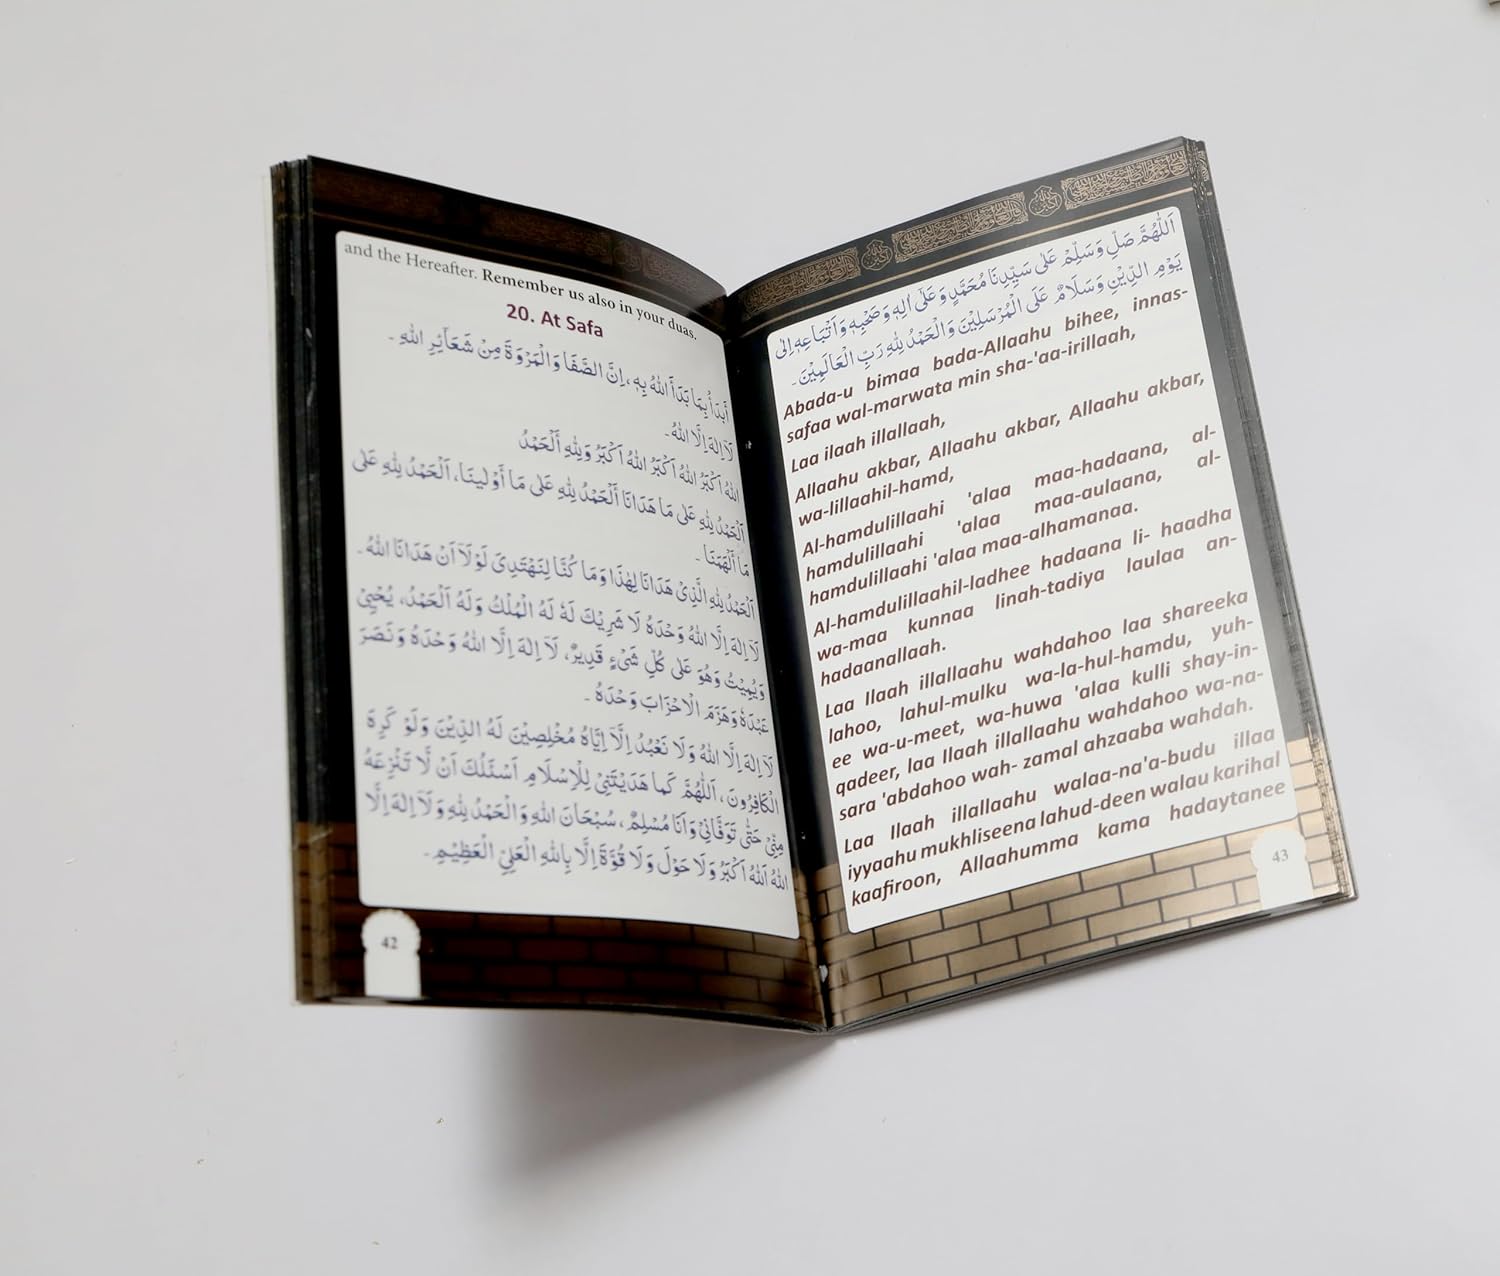 and the Hereafter. Remember us also in your duas.
20. At Safa
أَبْدَأُ بِمَا بَدَأَ اللهُ بِهٖ، اِنَّ الصَّفَا وَالْمَرْوَةَ مِنْ شَعَآئِرِ اللهِ۔
لَآ اِلٰهَ اِلَّا اللهُ۔
اللهُ اَكْبَرُ اللهُ اَكْبَرُ اللهُ اَكْبَرُ وَلِلّٰهِ اَلْحَمْدُ
اَلْحَمْدُ لِلّٰهِ عَلٰى مَا هَدَانَا اَلْحَمْدُ لِلّٰهِ عَلٰى مَا أَوْلٰينَا، اَلْحَمْدُ لِلّٰهِ عَلٰى
مَا أَلْهَمَنَا۔
اَلْحَمْدُ لِلّٰهِ الَّذِىْ هَدَانَا لِهٰذَا وَمَا كُنَّا لِنَهْتَدِىَ لَوْلَآ اَنْ هَدَانَا اللهُ۔
لَآ اِلٰهَ اِلَّا اللهُ وَحْدَهُ لَا شَرِيْكَ لَهُ لَهُ الْمُلْكُ وَلَهُ الْحَمْدُ، يُحْيِىْ
وَيُمِيْتُ وَهُوَ عَلٰى كُلِّ شَىْءٍ قَدِيْرٌ، لَآ اِلٰهَ اِلَّا اللهُ وَحْدَهُ وَنَصَرَ
عَبْدَهُ وَهَزَمَ الْاَحْزَابَ وَحْدَهُ۔
لَآ اِلٰهَ اِلَّا اللهُ وَلَا نَعْبُدُ اِلَّآ اِيَّاهُ مُخْلِصِيْنَ لَهُ الدِّيْنَ وَلَوْ كَرِهَ
الْكَافِرُونَ، اَللّٰهُمَّ كَمَا هَدَيْتَنِىْ لِلْاِسْلَامِ اَسْئَلُكَ اَنْ لَّا تَنْزِعَهُ
مِنِّىْ حَتّٰى تَوَفَّانِىْ وَاَنَا مُسْلِمٌ، سُبْحَانَ اللهِ وَالْحَمْدُ لِلّٰهِ وَلَآ اِلٰهَ اِلَّا
اللهُ اَللهُ اَكْبَرُ وَلَا حَوْلَ وَلَا قُوَّةَ اِلَّا بِاللهِ الْعَلِىِّ الْعَظِيْمِ۔
42
اَللّٰهُمَّ صَلِّ وَسَلِّمْ عَلٰى سَيِّدِنَا مُحَمَّدٍ وَعَلٰى اٰلِهٖ وَصَحْبِهٖ وَاَتْبَاعِهٖ اِلٰى
يَوْمِ الدِّيْنِ وَسَلَامٌ عَلَى الْمُرْسَلِيْنَ وَالْحَمْدُ لِلّٰهِ رَبِّ الْعَالَمِيْنَ۔
Abada-u bimaa bada-Allaahu bihee, innas-
safaa wal-marwata min sha-'aa-irillaah,
Laa ilaah illallaah,
Allaahu akbar, Allaahu akbar, Allaahu akbar,
wa-lillaahil-hamd,
Al-hamdulillaahi 'alaa maa-hadaana, al-
hamdulillaahi 'alaa maa-aulaana, al-
hamdulillaahi 'alaa maa-alhamanaa.
Al-hamdulillaahil-ladhee hadaana li- haadha
wa-maa kunnaa linah-tadiya laulaa an-
hadaanallaah.
Laa Ilaah illallaahu wahdahoo laa shareeka
lahoo, lahul-mulku wa-la-hul-hamdu, yuh-
ee wa-u-meet, wa-huwa 'alaa kulli shay-in-
qadeer, laa Ilaah illallaahu wahdahoo wa-na-
sara 'abdahoo wah- zamal ahzaaba wahdah.
Laa Ilaah illallaahu walaa-na'a-budu illaa
iyyaahu mukhliseena lahud-deen walau karihal
kaafiroon, Allaahumma kama hadaytanee
43